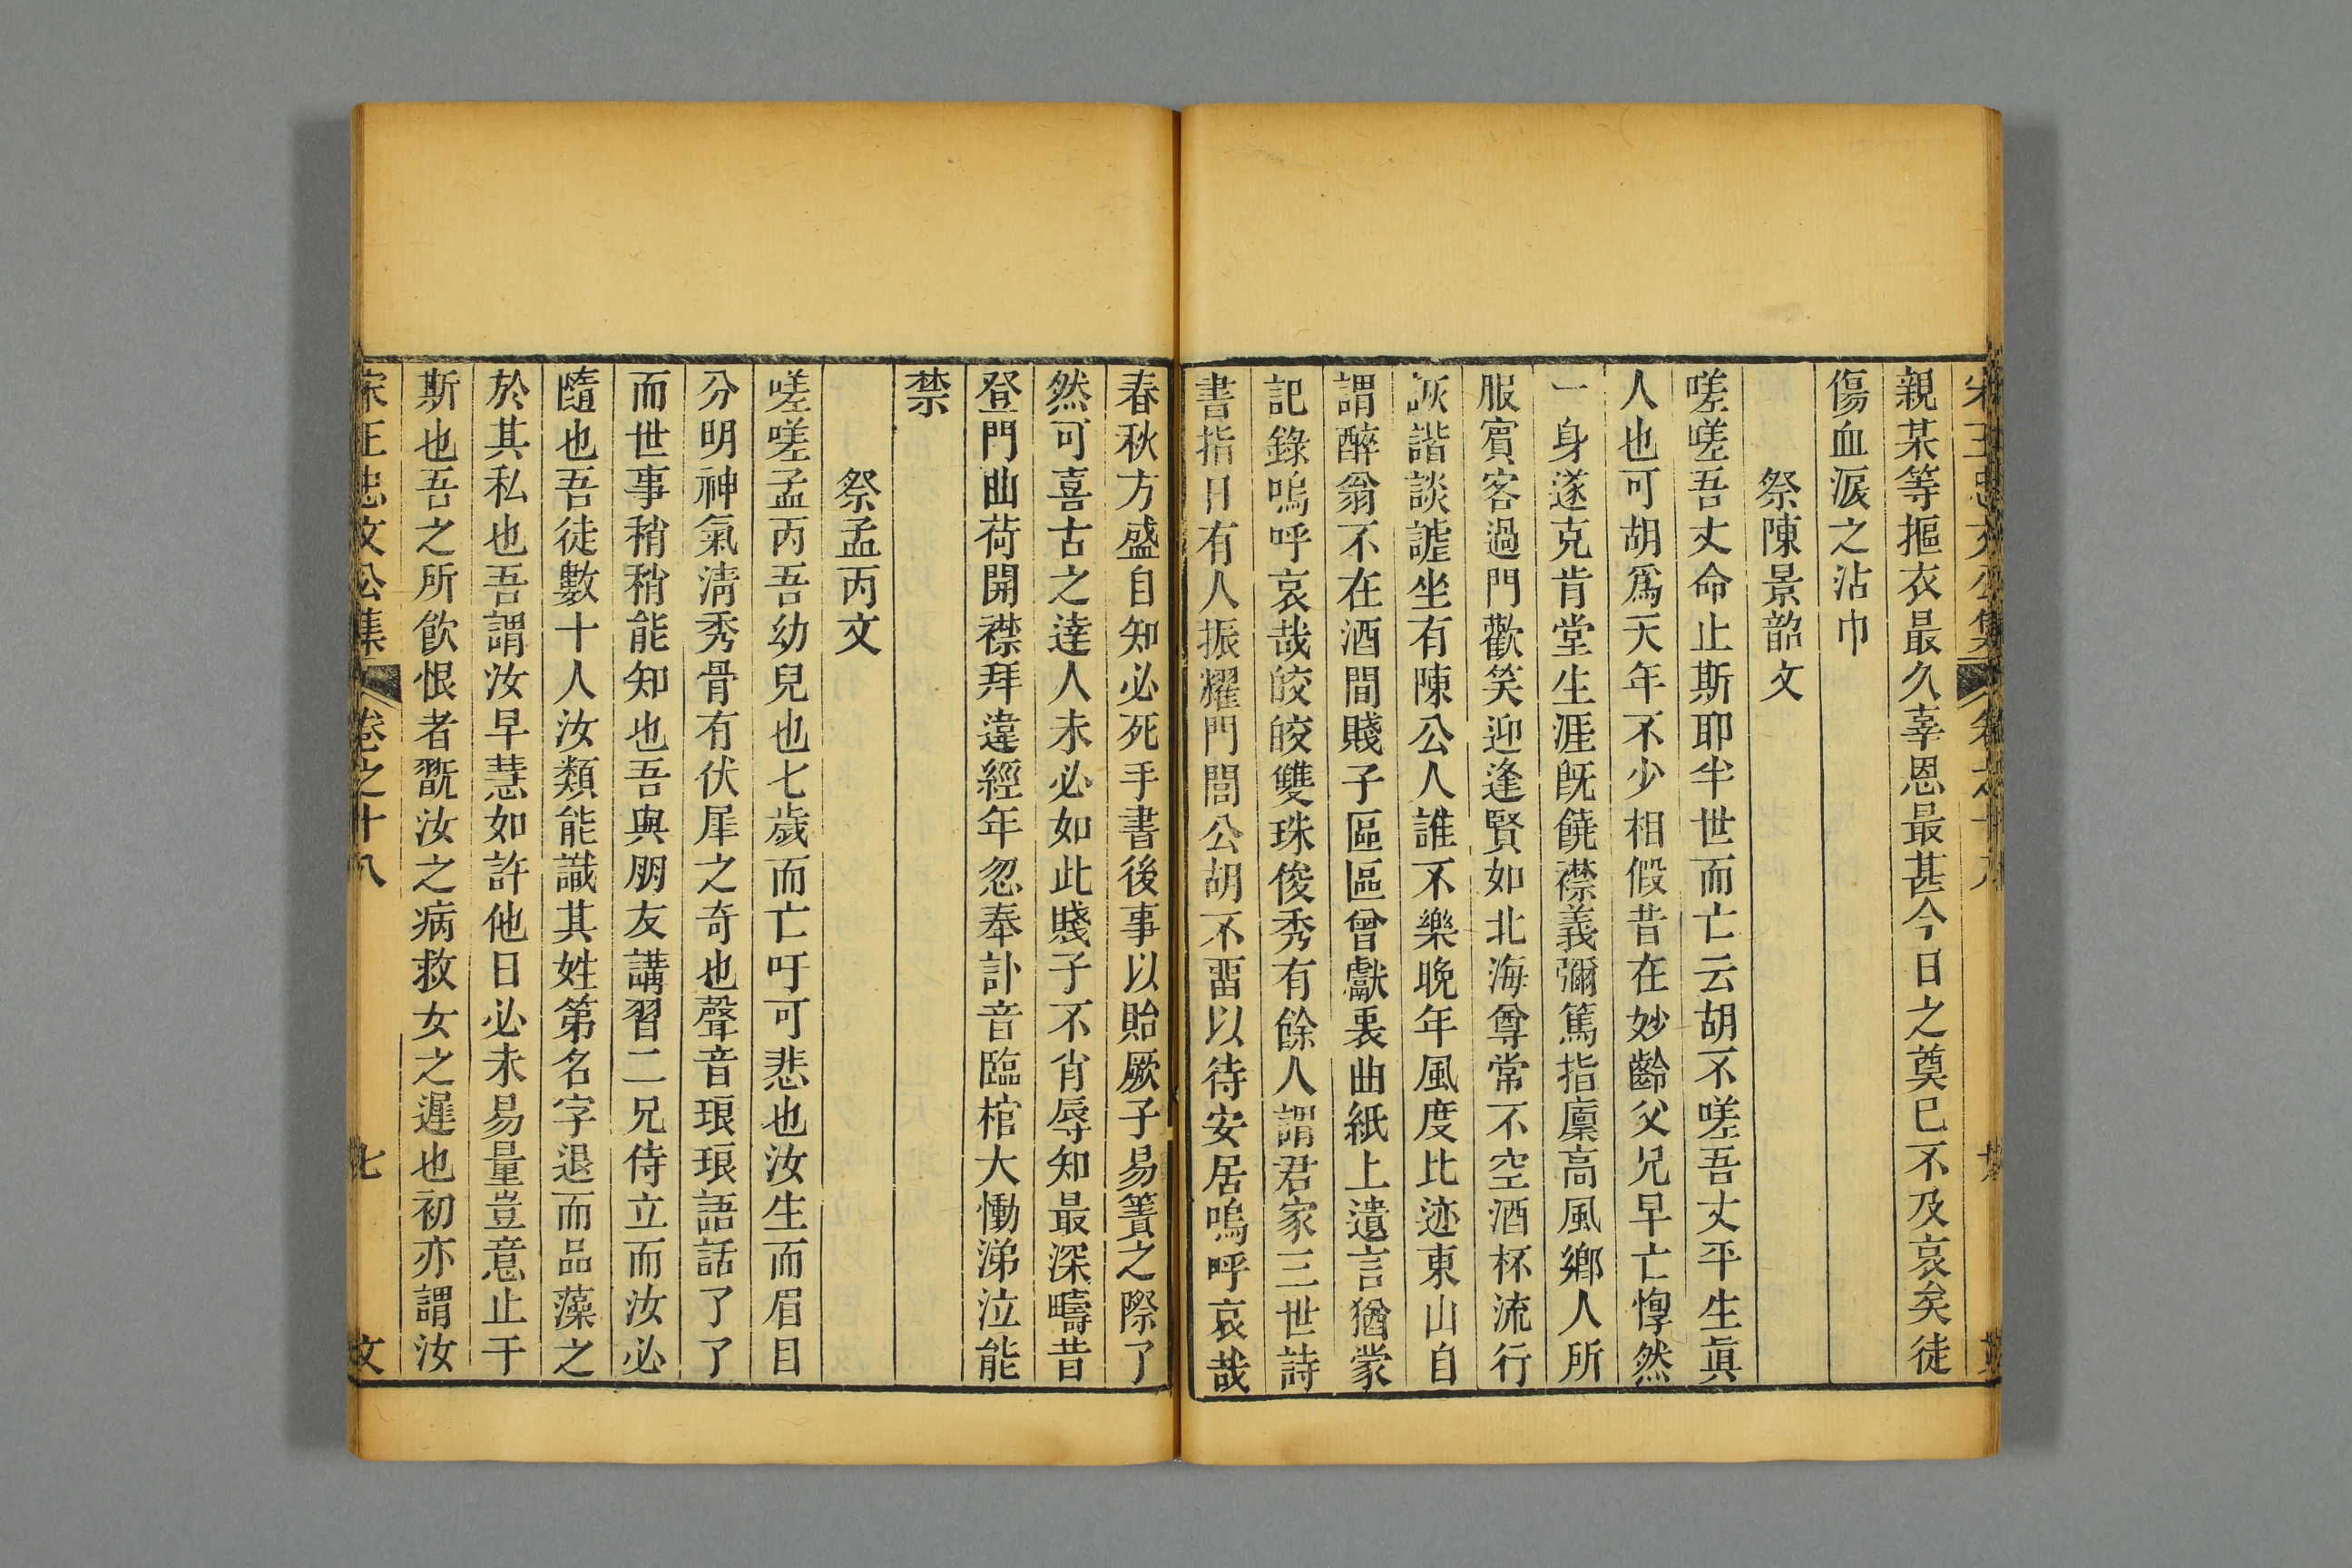 親某等摳衣最久辜恩最甚今日之奠已不及哀矣徒
傷血淚之沾巾
祭陳景韶文
嗟嗟吾丈命止斯耶半世而亡云胡不嗟吾丈平生眞
人也可胡爲天年不少相假昔在妙齡父兄早亡惸然
一身遂克肯堂生涯既饒襟義彌篤指廩高風鄉人所
服賓客過門歡笑迎逢賢如北海尊常不空酒杯流行
詼諧談謔坐有陳公人誰不樂晚年風度比迹東山自
謂醉翁不在酒間賤子區區曾獻裏曲紙上遺言猶蒙
記錄嗚呼哀哉皎皎雙珠俊秀有餘人謂君家三世詩
書指日有人振耀門閭公胡不畱以待安居嗚呼哀哉
春秋方盛自知必死手書後事以貽厥子易簀之際了
然可喜古之達人未必如此賤子不肖辱知最深疇昔
登門曲荷開襟拜違經年忽奉訃音臨棺大慟涕泣能
禁
祭孟丙文
嗟嗟孟丙吾幼兒也七歲而亡吁可悲也汝生而眉目
分明神氣清秀骨有伏犀之奇也聲音琅琅語話了了
而世事稍稍能知也吾與朋友講習二兄侍立而汝必
隨也吾徒數十人汝類能識其姓第名字退而品藻之
於其私也吾謂汝早慧如許他日必未易量豈意止于
斯也吾之所飲恨者翫汝之病救女之遲也初亦謂汝
宋王忠文公集 卷之十八 七 文